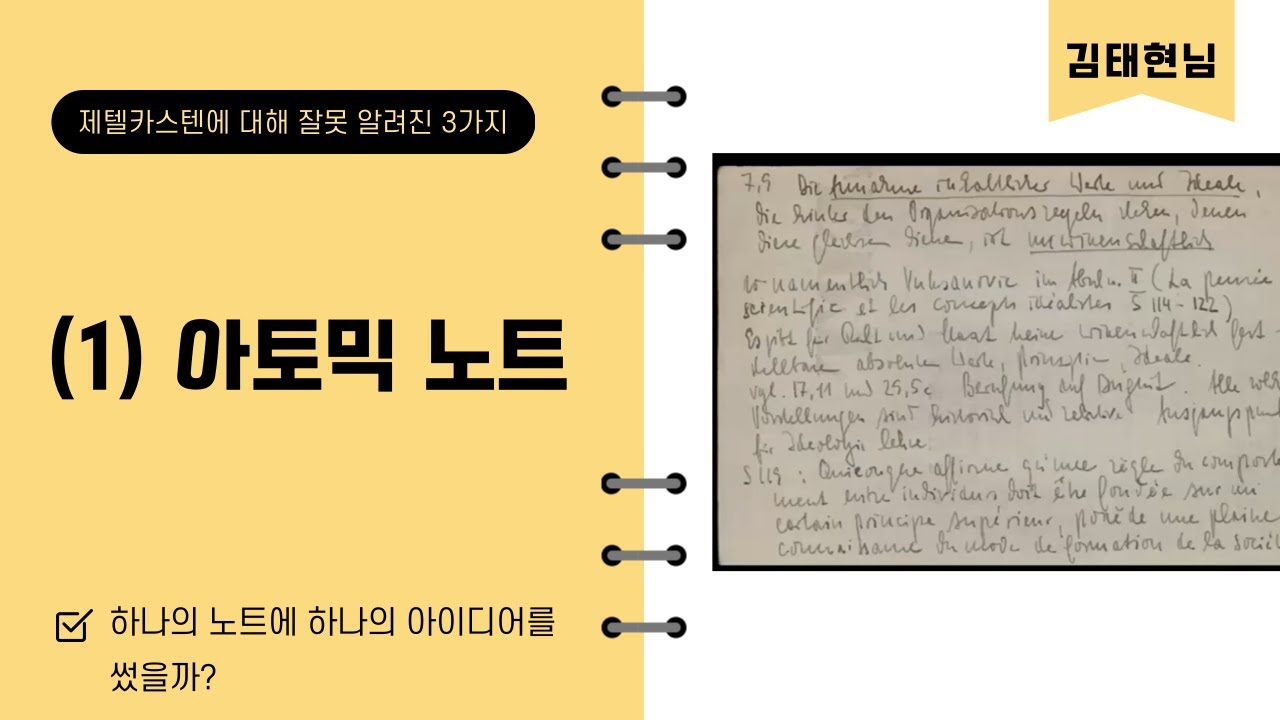 김태현님
제텔카스텐에 대해 잘못 알려진 3가지
(1) 아토믹 노트
하나의 노트에 하나의 아이디어를
썼을까?
7,9 Die Annahme inhaltlicher Werte und Ideale,
die hinter den Organisationsregeln stehen, denen
diese dienen, ist unwissenschaftlich
so namentlich Vuksanovic im II (La pensée
scientific et les concepts idéalistes S 114-122)
Es gibt für Kunst keine wissenschaftlich fest-
stellbare absolute Werte, Prinzipien, Ideale.
vgl. 17,11 und 25,5c Berufung auf Alle
Vorstellungen sind historisch und relative
für Ideologie lehre.
S 119: Quiconque affirme qu'une règle du comporte
ment entre individus doit être fondée sur un
certain principe supérieur, possède une pleine
connaissance du mode de formation de la